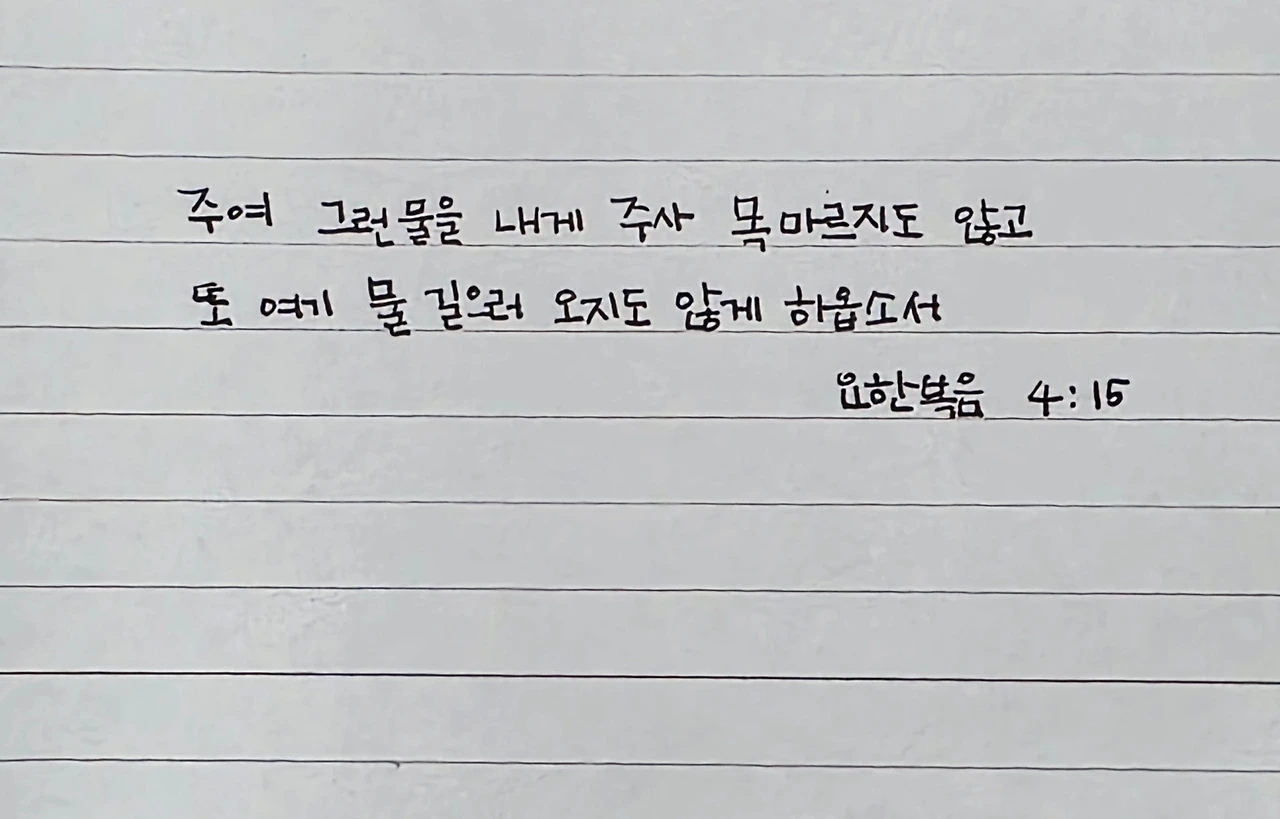 주여 그런물을 내게 주사 목마르지도 않고
또 여기 물 길으러 오지도 않게 하옵소서
요한복음 4:15